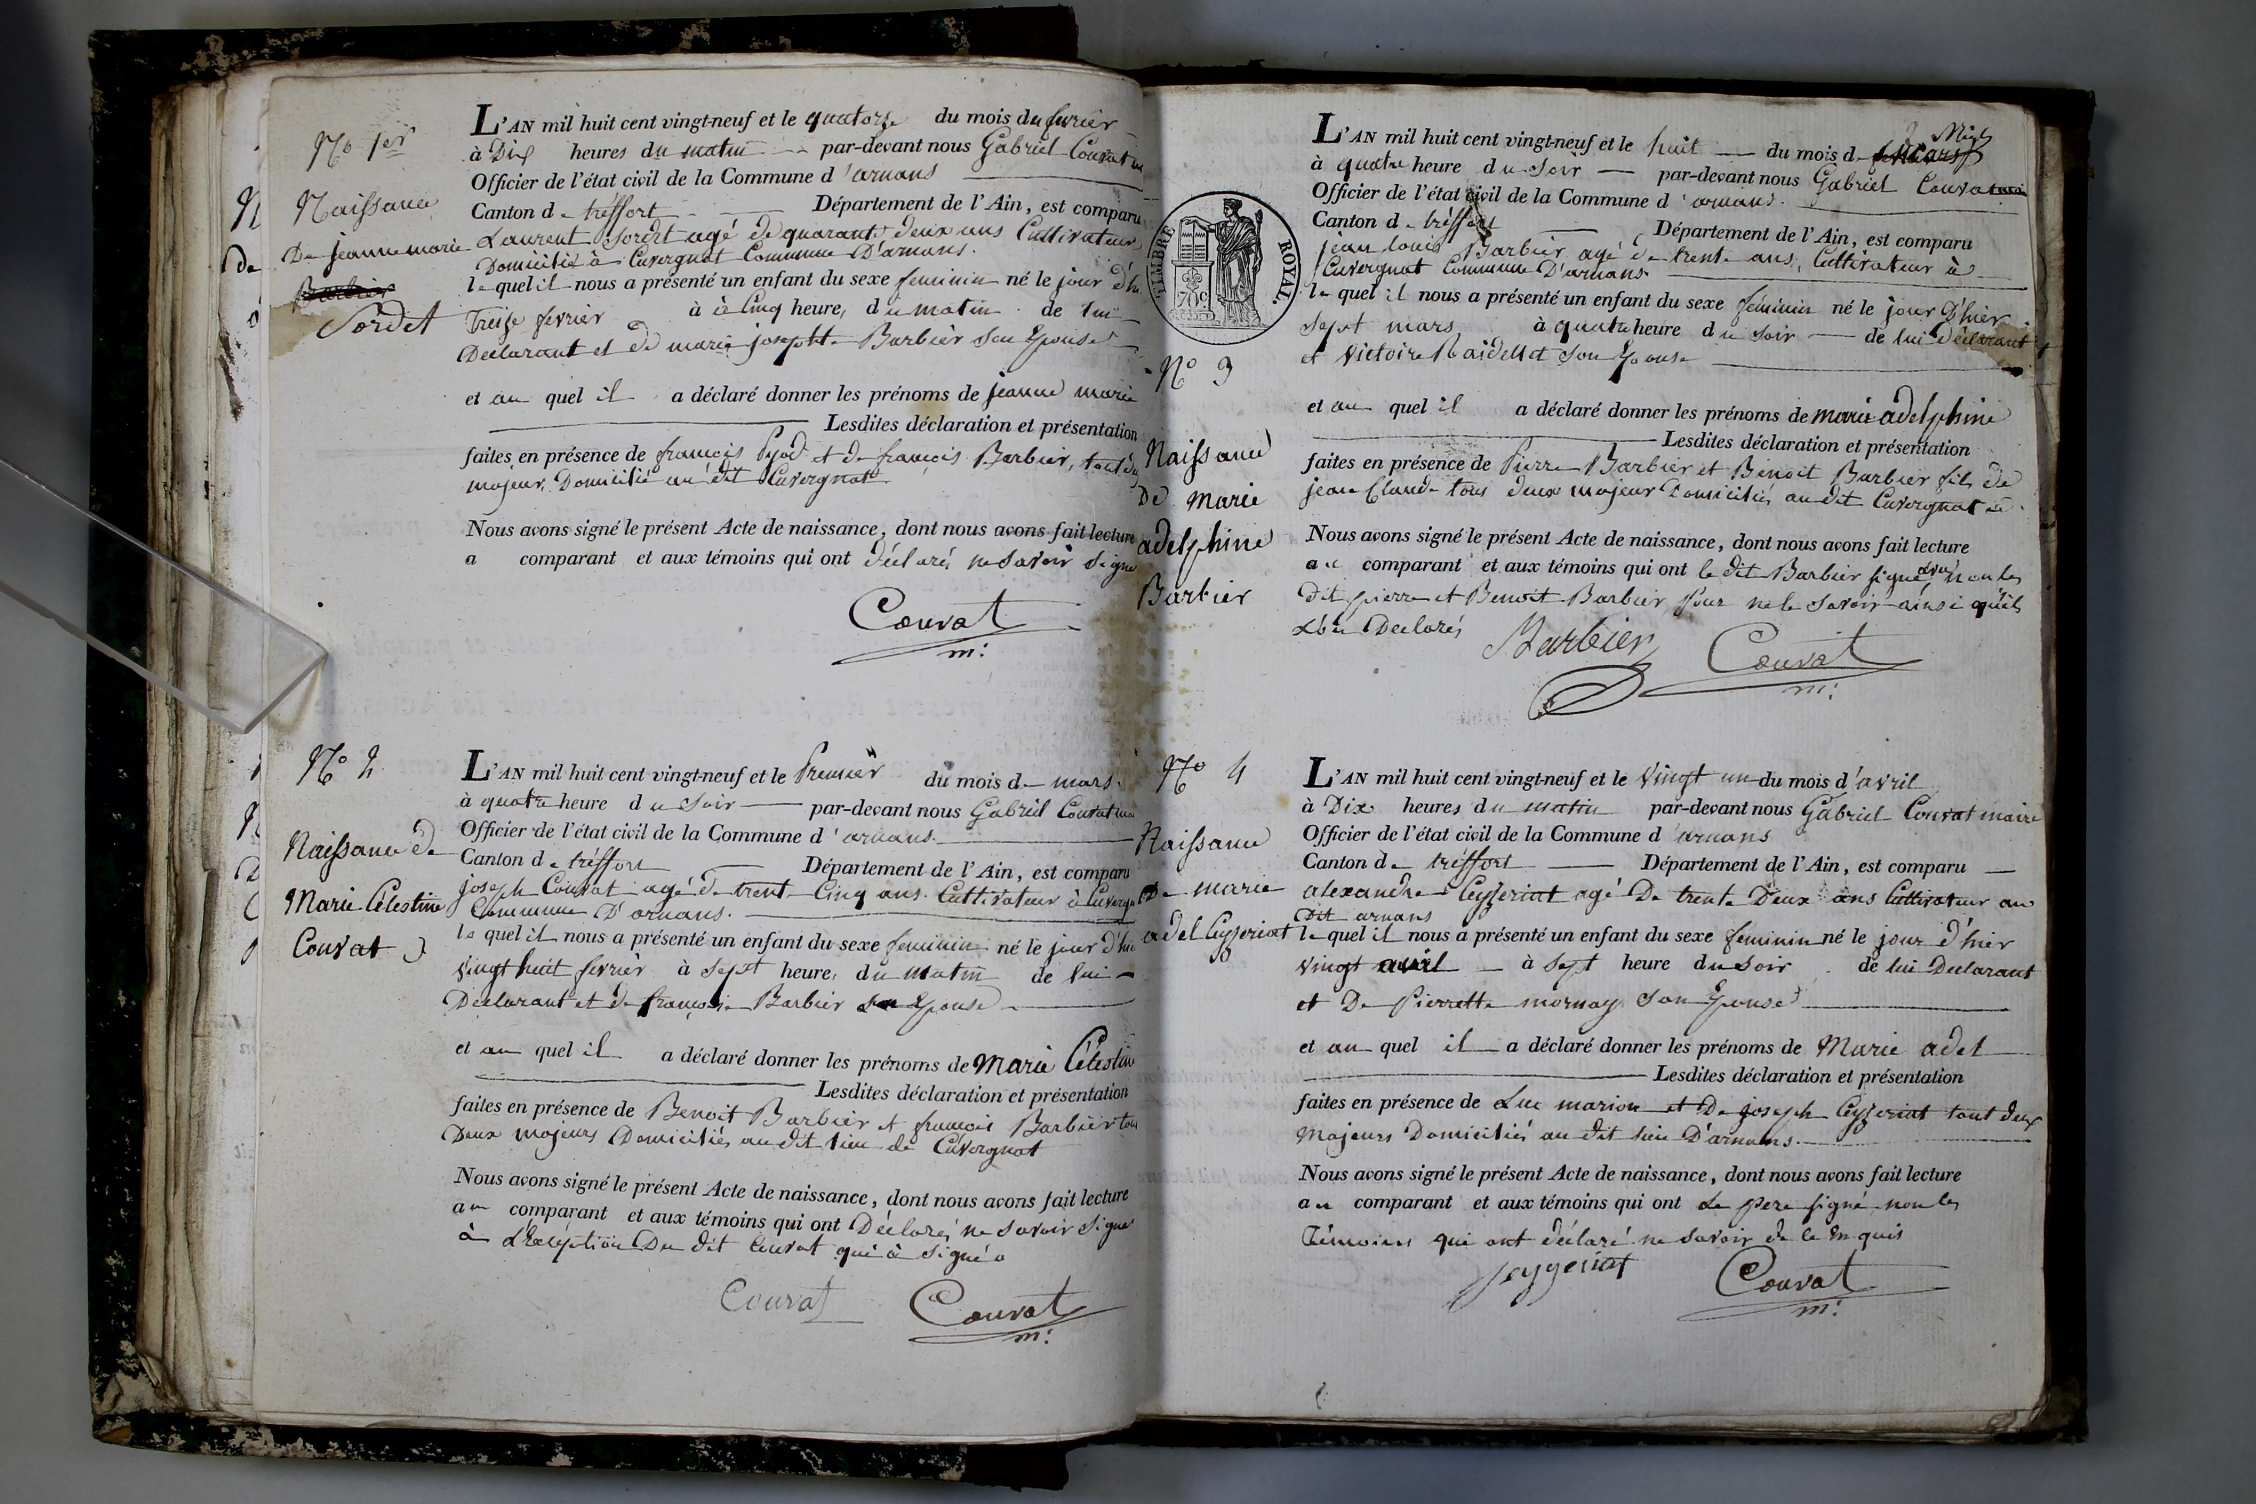 No 1er
Naissance
De jeanne marie
Barbier
Sordet
L'AN mil huit cent vingt-neuf et le quatorze du mois du fevrier
à Dix heures du matin par-devant nous Gabriel Couvat
Officier de l'état civil de la Commune d'arnans
Canton de tréffort Département de l'Ain, est comparu
Laurent Sordet agé de quarante deux ans Cultivateur
Domicilié à Cuvergnat Commune D'arnans.
le quel il nous a présenté un enfant du sexe feminin né le jour d'hi
Treize fevrier à Cinq heure, du matin de lui
Declarant et de marie josephte Barbier son Epouse
et au quel il a déclaré donner les prénoms de jeanne marie
Lesdites déclaration et présentation
faites en présence de françois et de francois Barbier, tout
majeur, Domicilié au dit Cuvergnat
Nous avons signé le présent Acte de naissance, dont nous avons fait lecture
a comparant et aux témoins qui ont déclaré ne savoir signe
Couvat
m:
No 2
Naissance de
Marie Célestine
Couvat
L'AN mil huit cent vingt-neuf et le Premier du mois de mars
à quatre heure du soir par-devant nous Gabriel Couvat
Officier de l'état civil de la Commune d'arnans.
Canton de tréffort Département de l'Ain, est comparu
joseph Couvat agé de trent Cinq ans Cultivateur à Cuvergn
Commune D'arnans.
le quel il nous a présenté un enfant du sexe feminin né le jour d'hi
vingt huit fevrier à sept heure, du matin de lui
Declarant et de françoise Barbier son Epouse
et au quel il a déclaré donner les prénoms de Marie Célestin
Lesdites déclaration et présentation
faites en présence de Benoit Barbier et francois Barbier tou
Deux majeurs Domiciliés au dit lieu de Cuvergnat
Nous avons signé le présent Acte de naissance, dont nous avons fait lecture
au comparant et aux témoins qui ont Déclarés ne savoir signe
à L'Exéption Du dit Couvat qui à signé
Couvat Couvat
m:
TIMBRE ROYAL.
70c
No 3
Naissance
De Marie
adelphine
Barbier
L'AN mil huit cent vingt-neuf et le huit du mois de mars
à quatre heure du soir par-devant nous Gabriel Couvat
Officier de l'état civil de la Commune d'arnans.
Canton de tréffort Département de l'Ain, est comparu
jean louis Barbier agé de trente ans, Cultivateur à
Cuvergnat Commune D'arnans.
le quel il nous a présenté un enfant du sexe feminin né le jour D'hier
sept mars à quatre heure du soir de lui Déclarant
et Victoire son Epouse
et au quel il a déclaré donner les prénoms de marie adelphine
Lesdites déclaration et présentation
faites en présence de Pierre Barbier et Benoit Barbier fils de
jean Claude tous deux majeur Domiciliés au dit Cuvergnat
Nous avons signé le présent Acte de naissance, dont nous avons fait lecture
au comparant et aux témoins qui ont le dit Barbier signé non les
Dit pierre et Benoit Barbier pour ne le savoir ainsi qu'ils
Declarés
Barbier Couvat
m:
No 4
Naissance
De marie
adel Ceyzeriat
L'AN mil huit cent vingt-neuf et le vingt un du mois d'avril
à Dix heures du matin par-devant nous Gabriel Couvat maire
Officier de l'état civil de la Commune d'arnans
Canton de tréffort Département de l'Ain, est comparu
alexandre Ceyzeriat agé De trente Deux ans Cultivateur au
Dit arnans
le quel il nous a présenté un enfant du sexe feminin né le jour d'hier
vingt avril à sept heure du soir de lui Declarant
et De Pierrette mornay son Epouse
et au quel il a déclaré donner les prénoms de Marie adel
Lesdites déclaration et présentation
faites en présence de Luc marion et De joseph Ceyzeriat tout deux
Majeurs Domiciliés au dit lieu D'arnans.
Nous avons signé le présent Acte de naissance, dont nous avons fait lecture
au comparant et aux témoins qui ont Le pere signé non les
Témoins qui ont déclaré ne savoir de ce Enquis
Couvat
m: